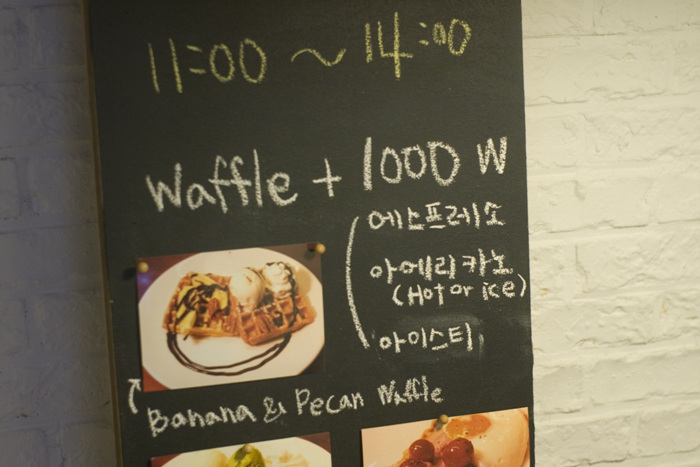 11:00 ~ 14:00
Waffle + 1000 W
에스프레소
아메리카노
(Hot or ice)
아이스티
Banana & Pecan Waffle